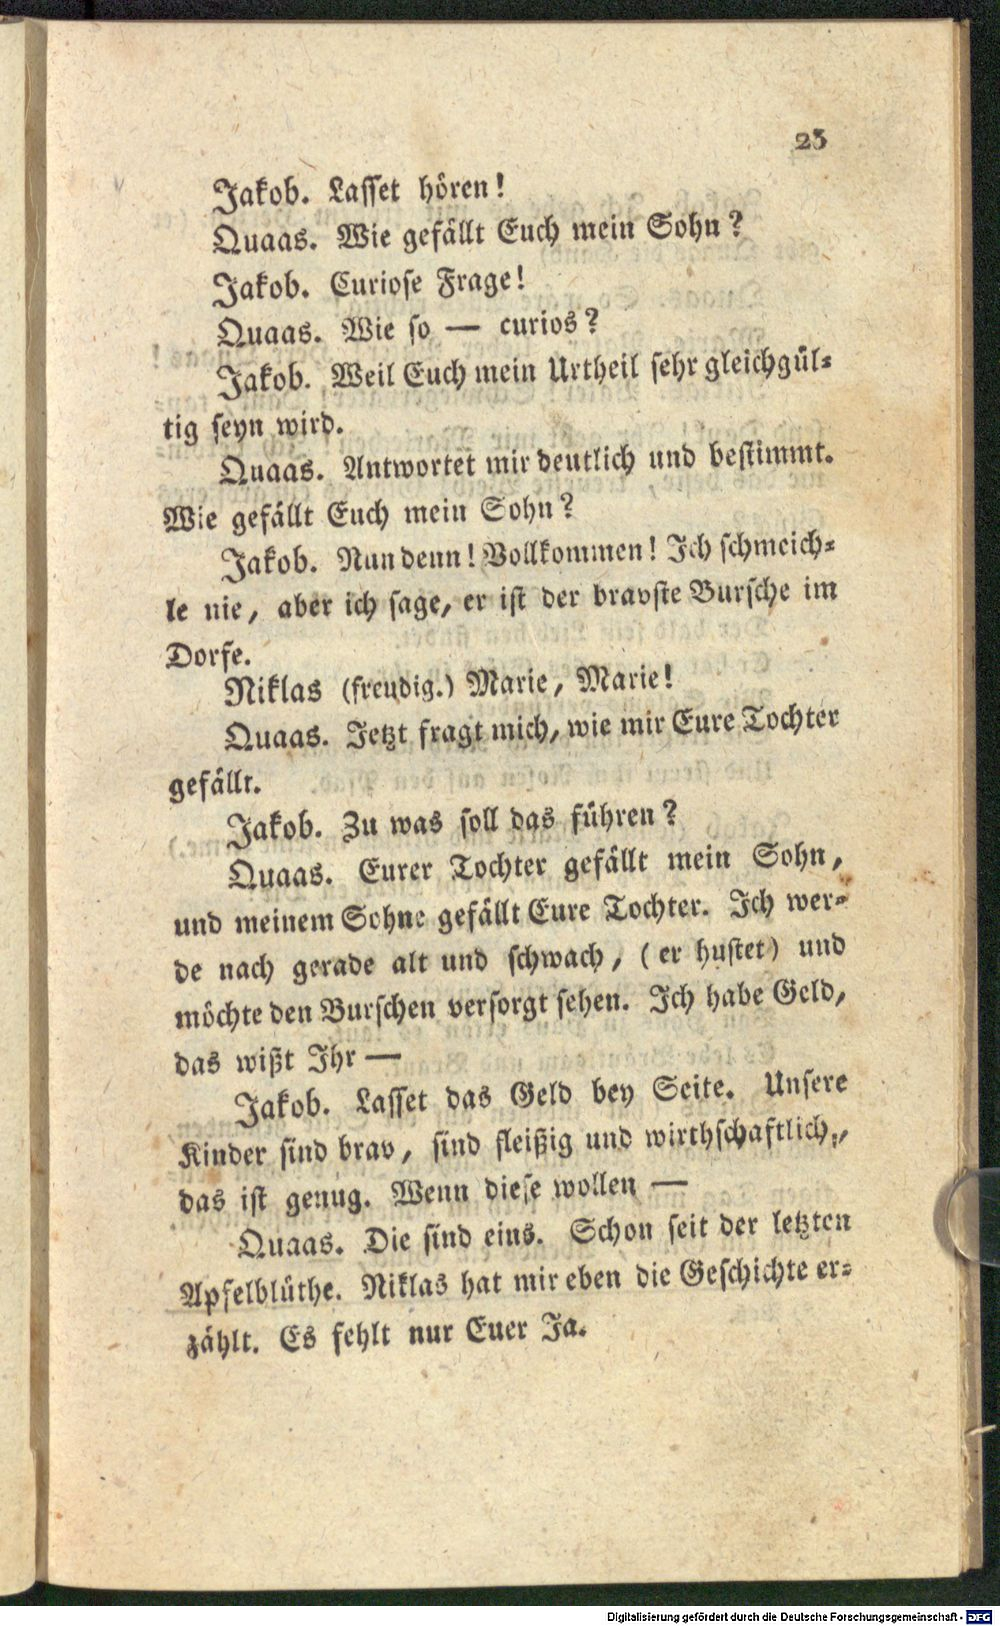 23
Jakob. Lasset hören!
Quaas. Wie gefällt Euch mein Sohn?
Jakob. Curiose Frage!
Quaas. Wie so — curios?
Jakob. Weil Euch mein Urtheil sehr gleichgül-
tig seyn wird.
Quaas. Antwortet mir deutlich und bestimmt.
Wie gefällt Euch mein Sohn?
Jakob. Nun denn! Vollkommen! Ich schmeich-
le nie, aber ich sage, er ist der bravste Bursche im
Dorfe.
Niklas (freudig.) Marie, Marie!
Quaas. Jetzt fragt mich, wie mir Eure Tochter
gefällt.
Jakob. Zu was soll das führen?
Quaas. Eurer Tochter gefällt mein Sohn,
und meinem Sohne gefällt Eure Tochter. Ich wer-
de nach gerade alt und schwach, (er hustet) und
möchte den Burschen versorgt sehen. Ich habe Geld,
das wißt Ihr —
Jakob. Lasset das Geld bey Seite. Unsere
Kinder sind brav, sind fleißig und wirthschaftlich,
das ist genug. Wenn diese wollen —
Quaas. Die sind eins. Schon seit der letzten
Apfelblüthe. Niklas hat mir eben die Geschichte er-
zählt. Es fehlt nur Euer Ja.
Digitalisierung gefördert durch die Deutsche Forschungsgemeinschaft - DFG